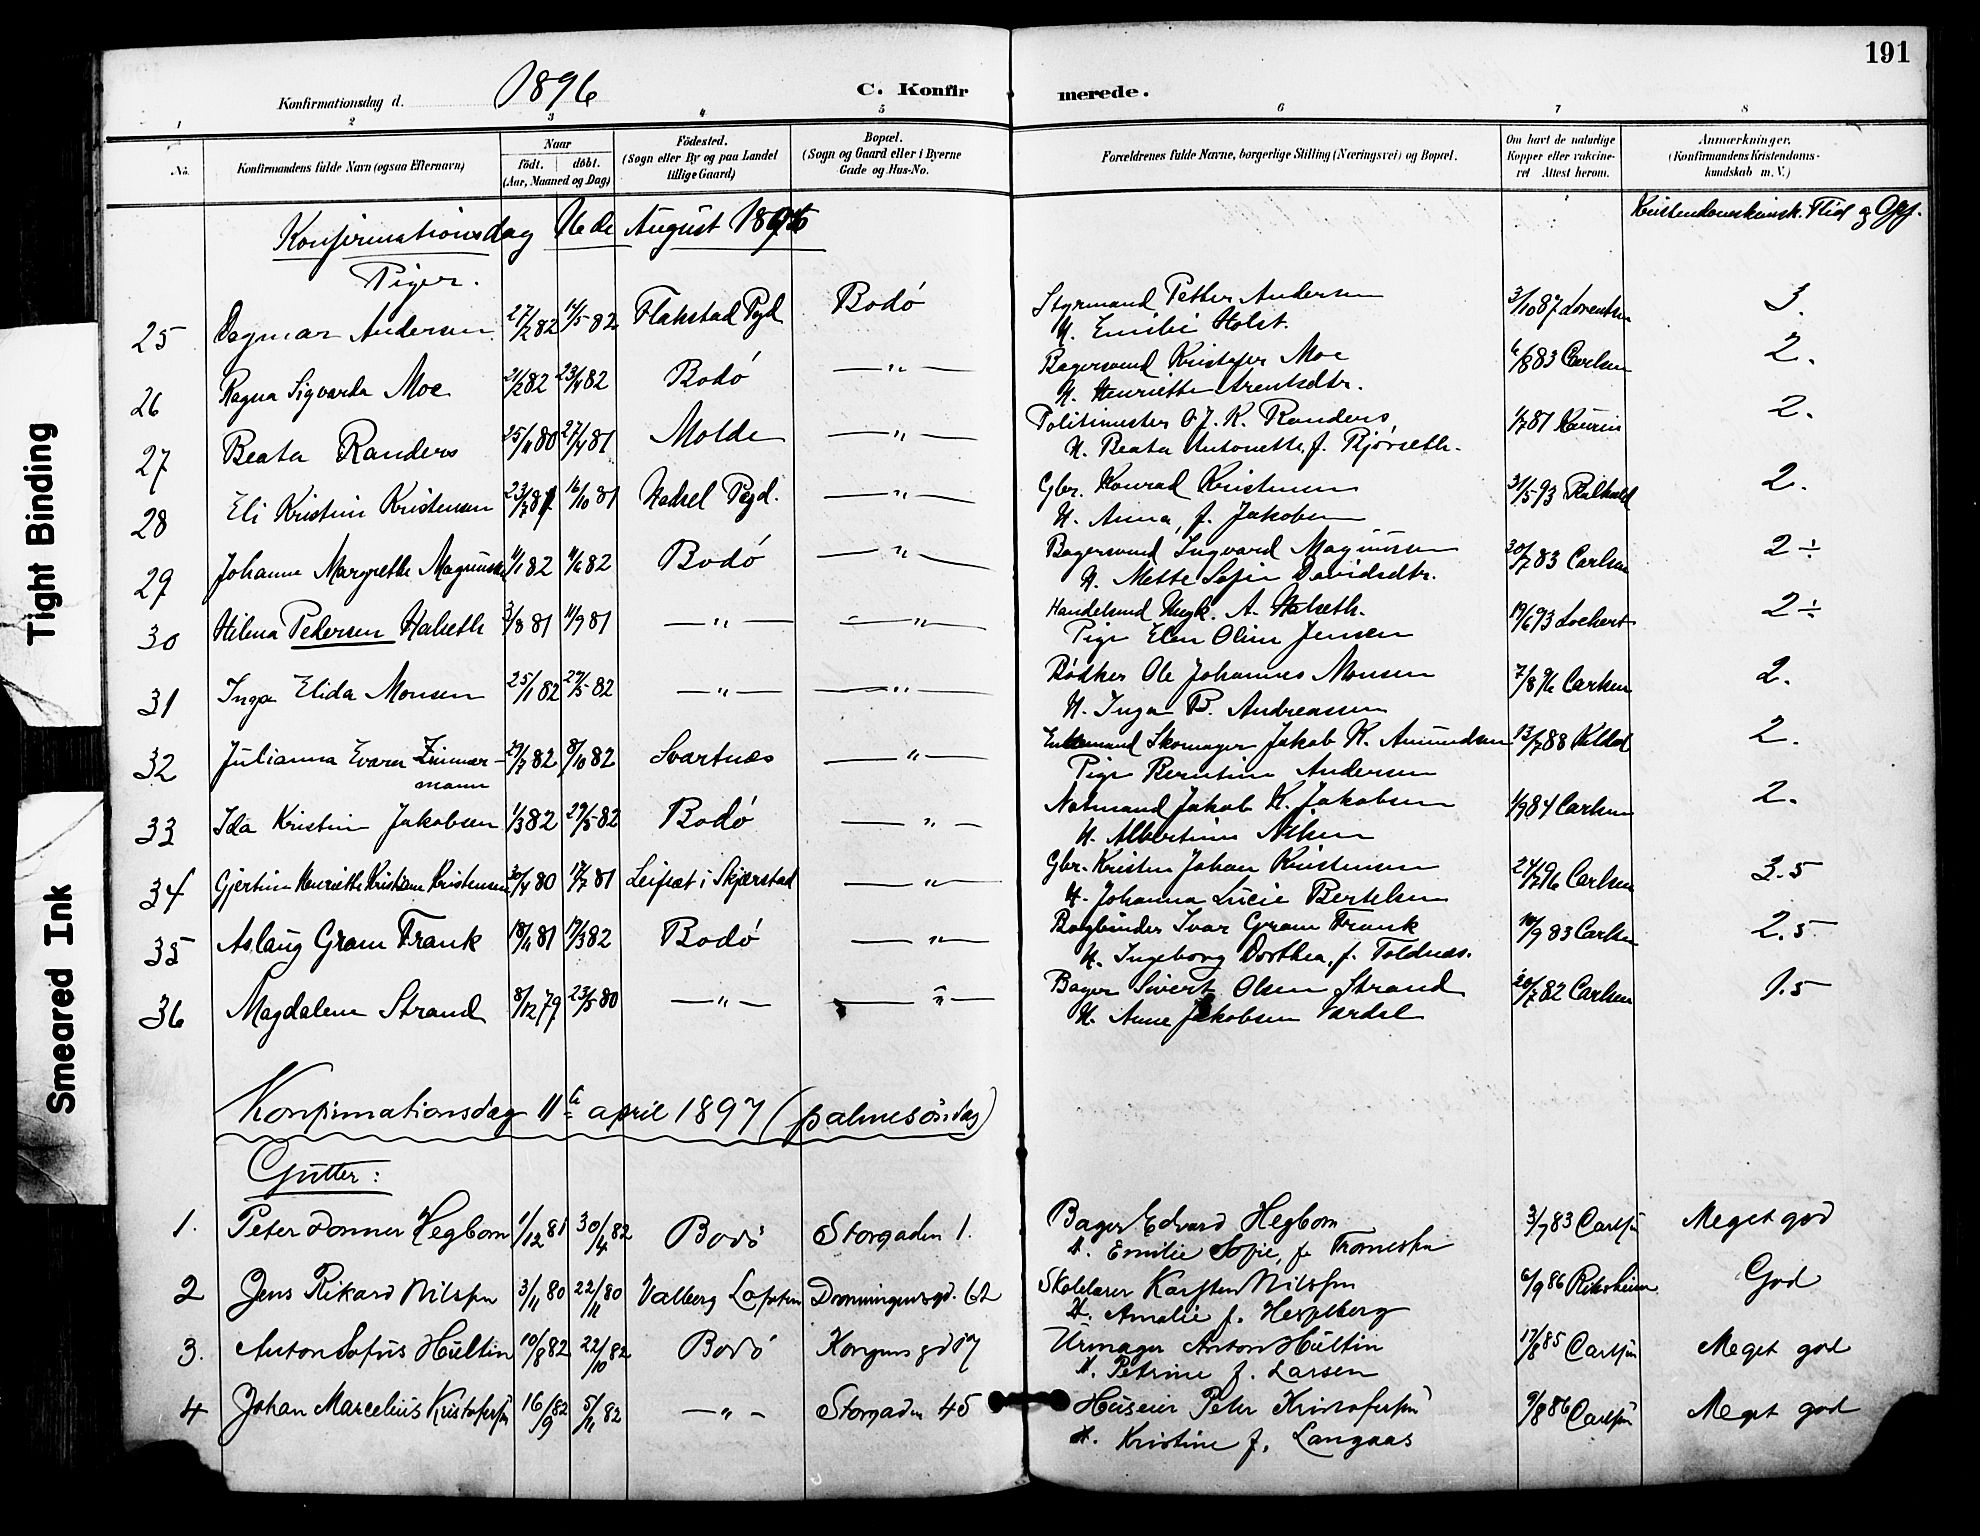 191
Konfirmationsdag d. 1896
C. Konfirmerede.
1 2 3 4 5 6 7 8
No.
Konfirmandens fulde Navn (ogsaa Efternavn)
Naar
födt. döbt.
(Aar, Maaned og Dag)
Födested.
(Sogn eller By og paa Landet
tillige Gaard)
Bopæl.
(Sogn og Gaard eller i Byerne
Gade og Hus-No.
Forældrenes fulde Navne, borgerlige Stilling (Næringsvei) og Bopæl.
Om havt de naturlige
Kopper eller vakcine-
ret Attest herom.
Anmærkninger.
(Konfirmandens Kristendoms-
kundskab m. V.)
Kristendomskunsk. Flid og Opf.
Konfirmationsdag 16de August 1896
Piger.
25 Dagmar Andersen 27/2 82 14/5 82 Flakstad Pgd Bodó Styrmand Petter Andersen 3/10 87 Lorentsen 3.
H. Emilie Holst.
26 Ragna Sigvarda Moe 21/2 82 23/4 82 Bodó —"— Bagersvend Kristofer Moe 6/8 83 Carlsen 2.
H. Henriette Arentsdtr.
27 Beata Randers 25/11 80 27/4 81 Molde —"— Politimester O. J. K. Randers 1/7 81 Kaurin 2.
H. Beata Antonette, f. Bjørseth.
28 Eli Kristine Kristensen 23/7 81 16/10 81 Hadsel Pgd. —"— Gbr. Konrad Kristensen 31/5 93 2.
H. Anna, f. Jakobsen
29 Johanna Margrethe Magnussen 11/1 82 11/6 82 Bodó —"— Bagersvend Ingvard Magnussen 30/7 83 Carlsen 2 ÷
H. Mette Sofie Davidsdtr.
30 Hilma Pedersen Halseth 3/8 81 11/9 81 —"— —"— Handelsmd A. Halseth. 19/6 93 Lockert 2 ÷
Pige Elen Oline Jensen
31 Inga Elida Monsen 25/1 82 29/5 82 —"— —"— Bøkker Ole Johannes Monsen 7/8 96 Carlsen 2.
H. Inga B. Andreassen
32 Julianna Evara Zimmer- 29/7 82 8/10 82 Svartnæs —"— Enkemand Skomager Jakob K. Amundsen 13/7 88 2.
mann Pige Berntine Andersen
33 Ida Kristine Jakobsen 1/3 82 29/5 82 Bodó —"— Notmand Jakob K. Jakobsen 1/9 84 Carlsen 2.
H. Albertine Nilsen
34 Gjertine Henriette Kristiane Kristensen 30/4 80 17/7 81 i Skjærstad —"— Gbr. Kristen Johan Kristensen 24/7 96 Carlsen 3.5
H. Johanna Lucie Bertelsen
35 Aslaug Gram Frank 18/11 81 19/3 82 Bodó —"— Bogbinder Ivar Gram Frank 10/9 83 Carlsen 2.5
H. Ingeborg Dorthea, f. Toldnæs.
36 Magdalene Strand 8/12 79 23/5 80 —"— —"— Bager Sivert Olsen Strand 20/7 82 Carlsen 1.5
H. Anne Jakobsen Værdal
Konfirmationsdag 11te april 1897 (palmesöndag)
Gutter:
1. Peter Donner Hegbom 1/12 81 30/4 82 Bodó Storgaden 1. Bager Edvard Hegbom 3/9 83 Carlsen Meget god
H. Emilie Sofie, f.
2 Jens Rikard Nilssen 3/11 80 22/11 80 Valberg Lofoten Dronningensgd. 62 Skolelærer Karsten Nilssen 6/9 86 God
H. Amalie f. Hespberg
3. Anton Sofus Hultin 10/8 82 22/10 82 Bodó Kongens gd 17 Urmager Anton Hultin 17/8 85 Carlsen Meget god
H. Petrine f. Larsen
4 Johan Marcelius Kristofersen 16/9 82 5/11 82 —"— Storgaden 45 Huseier Peter Kristofersen 9/8 86 Carlsen Meget god
H. Kristine f. Langaas
Tight Binding
Smeared Ink